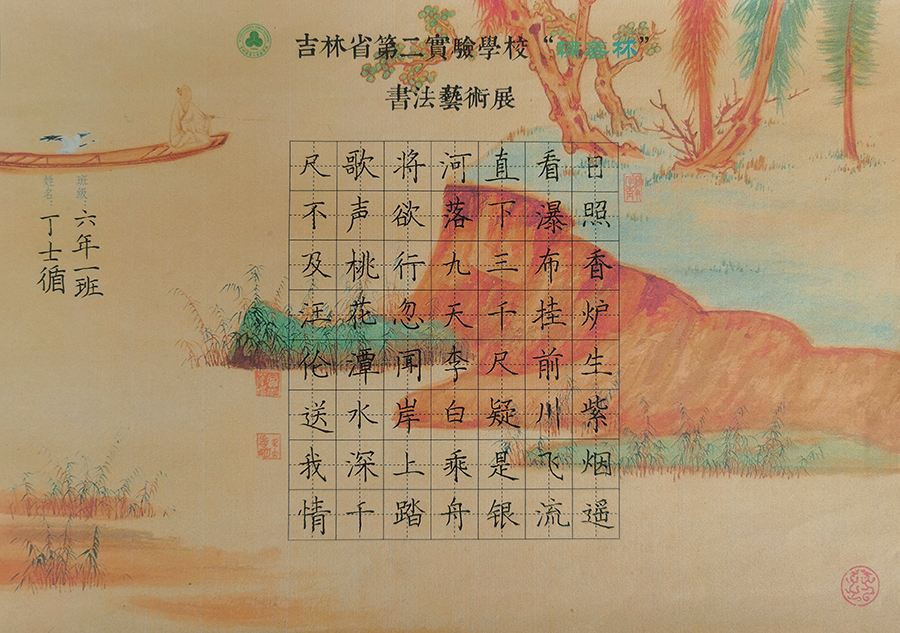 吉林省第二實驗學校“林”
書法藝術展
日照香炉生紫烟遥
看瀑布挂前川飞流
直下三千尺疑是银
河落九天李白乘舟
将欲行忽闻岸上踏
歌声桃花潭水深千
尺不及汪伦送我情
班級：六年一班
姓名：丁士循